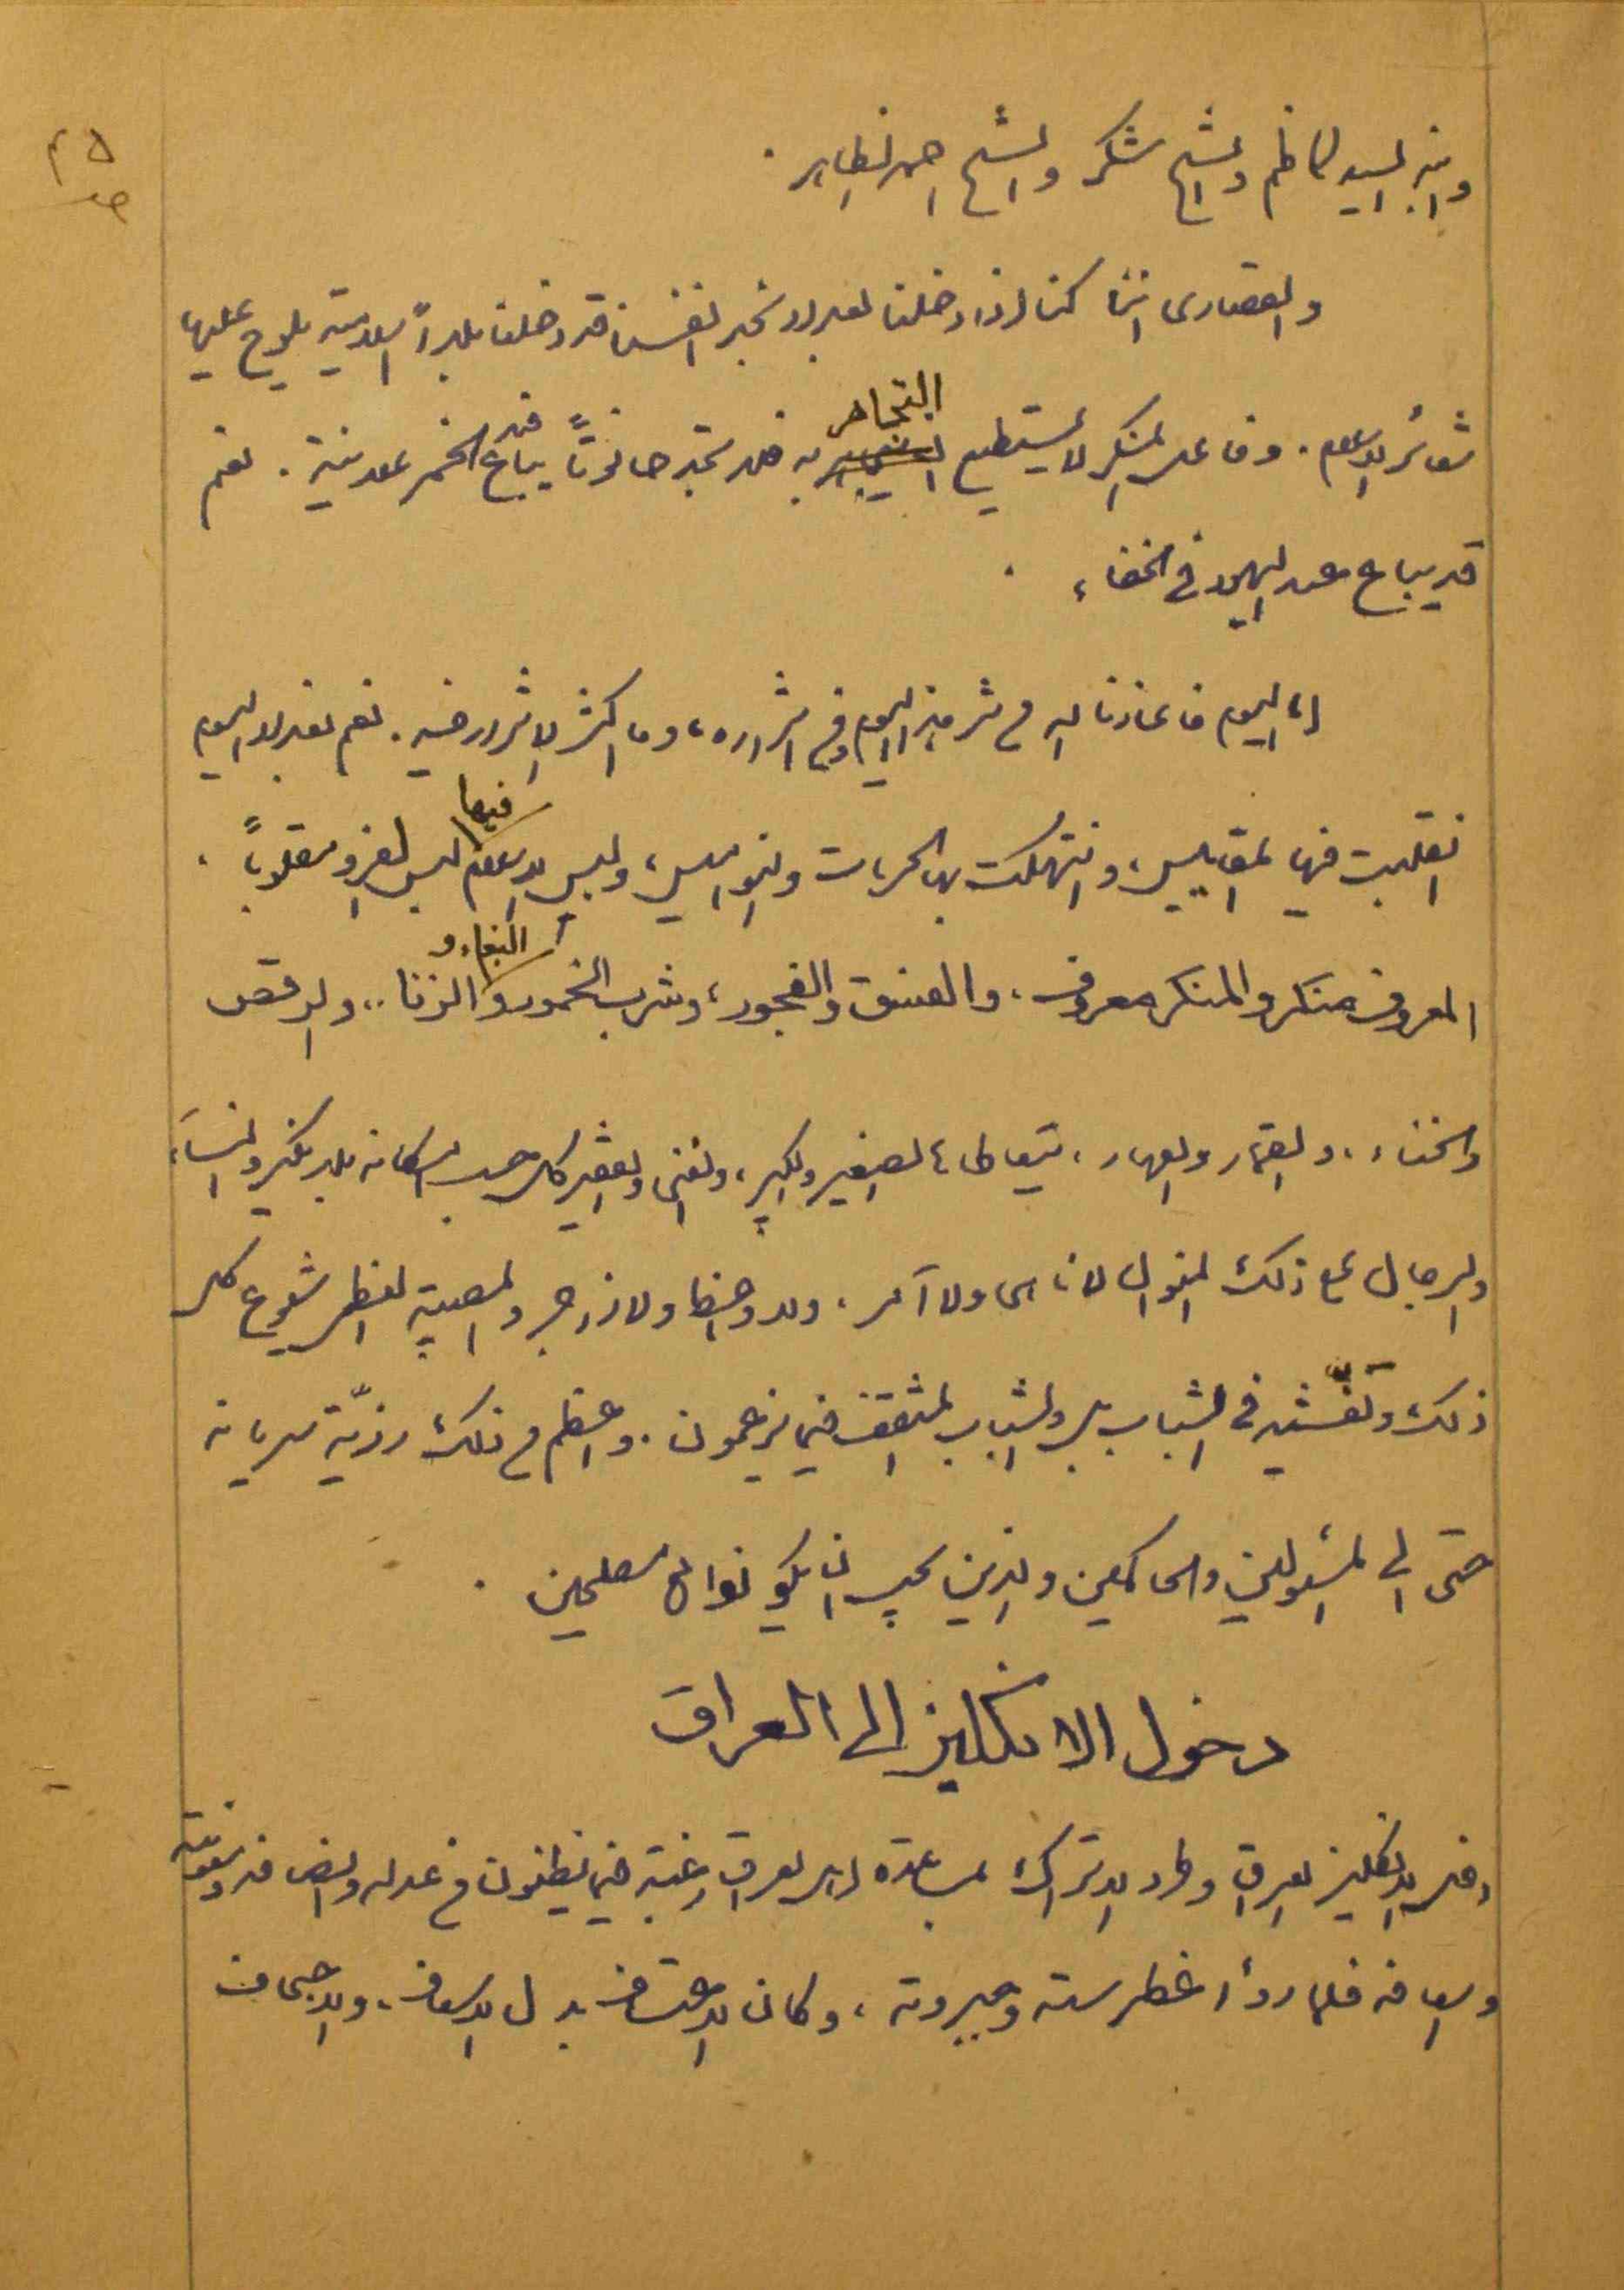 ٢٥
ص
وابنه السيد كاظم والشيخ شكر والشيخ احمد الظاهر .
والقصارى اننا كنا اذا دخلنا بغداد نجد انفسنا قد دخلنا بلداً اسلامية يلوح عليها
شعائر الاسلام . وفاعل المنكر لا يستطيع التجاهر به فلا تجد حانوتاً يباع فيه الخمر علانية . نعم
قد يباع عند اليهود في الخفاء .
اما اليوم فالعياذ بالله من شر هذا اليوم ومن اشراره ، وما اكثر الاشرار فيه . نعم بغداد اليوم
انقلبت فيها المقاييس ، وانتهكت بها الحرمات والنواميس ، ولبس الاسلام فيها لبس الفرو مقلوباً .
المعروف منكر والمنكر معروف ، والفسق والفجور ، وشرب الخمور والبغاء و الزنا .. والرقص
والخناء ، والقمار والعهار ، يتعاطاه الصغير والكبير ، والغني والفقير كل حسب امكانه بلا نكير والنساء
والرجال على ذلك المنوال لا ناهي ولا آمر ، ولا واعظ ولا زاجر والمصيبة العظمى شيوع كل
ذلك وتفشّيه في الشباب بل والشباب المثقف فيما يزعمون . واعظم من ذلك رزيّة سريانه
حتى الى المسئولين والحاكمين والذين يجب ان يكونوا من مصلحين .
دخول الانكليز الى العراق
دخل الانكليز العراق وطرد الاتراك بمساعدة اهل العراق رغبة فيما يظنون من عدله وانصافه ومعونته
واسعافه فلما رأوا غطرسته وجبروته ، وكان الاعتساف بدل الاسعاف ، والاجحاف